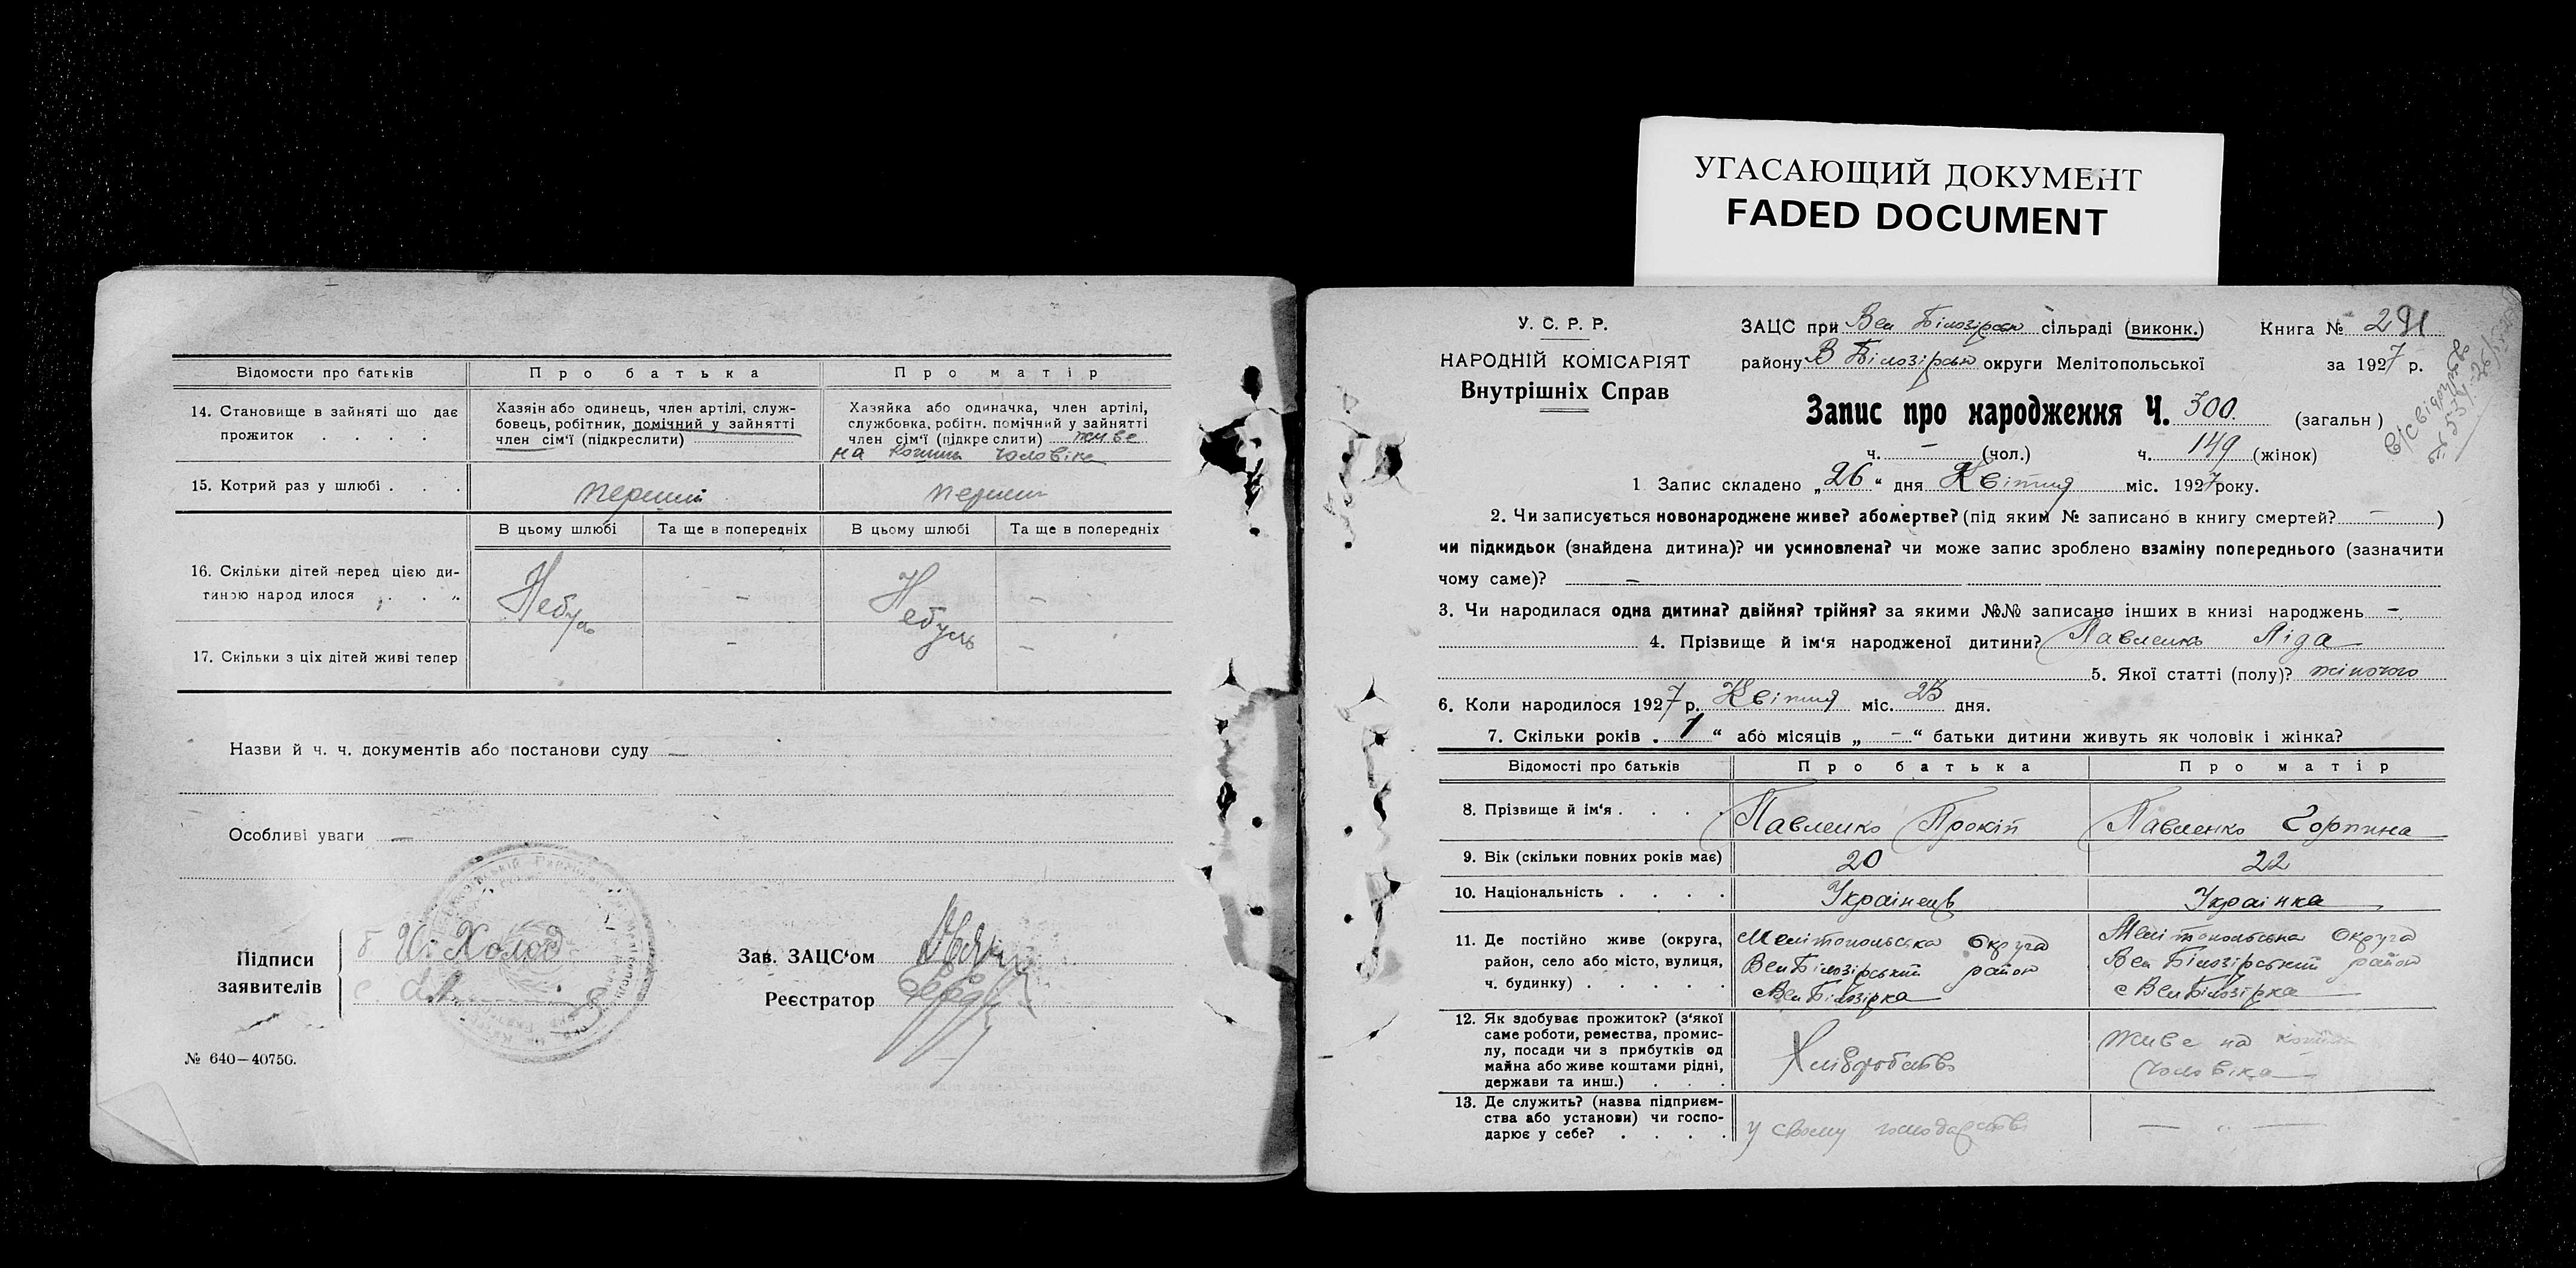 УГАСАЮЩИЙ ДОКУМЕНТ
FADED DOCUMENT
Відомости про батьків
Про батька
Про матір
14. Становище в зайняті що дає прожиток . . . .
Хазяін або одинець, член артілі, служ-
бовець, робітник, помічний у зайнятті
член сім'ї (підкреслити)
Хазяйка або одиначка, член артілі,
службовка, робітн. помічний у зайнятті
член сім'ї (підкреслити) живе
на кошти чоловіка
15. Котрий раз у шлюбі . . .
перший
перший
В цьому шлюбі
Та ще в попередніх
В цьому шлюбі
Та ще в попередніх
16. Скільки дітей перед цією ди-
тиною народилося
Небуло
-
Небуло
-
17. Скільки з ціх дітей живі тепер
-
-
Назви й ч. ч. документів або постанови суду —
Особливі уваги —
Підписи
заявителів
б И. Холод
с
Зав. ЗАЦС'ом
Реєстратор
№ 640—40750.
У. С. Р. Р.
НАРОДНІЙ КОМІСАРІЯТ
Внутрішніх Справ
ЗАЦС при Вел Білозірськ сільраді (виконк.)
Книга № 291
району В Білозірськ округи Мелітопольської
за 1927 р.
Запис про народження Ч. 300 (загальн)
ч. - (чол.) ч. 149 (жінок)
1 Запис складено „26" дня Квітня міс. 1927 року.
2. Чи записується новонароджене живе? або мертве? (під яким № записано в книгу смертей? - )
чи підкидьок (знайдена дитина)? чи усиновлена? чи може запис зроблено взаміну попереднього (зазначити
чому саме)? -
3. Чи народилася одна дитина? двійня? трійня? за якими №№ записано інших в книзі народжень -
4. Прізвище й ім'я народженої дитини? Павленко Ліда
5. Якої статті (полу)? жіночого
6. Коли народилося 1927 р. Квітня міс. 25 дня.
7. Скільки років „ 1 " або місяців „ - " батьки дитини живуть як чоловік і жінка?
Відомості про батьків
Про батька
Про матір
8. Прізвище й ім'я . . . .
Павленко Прокіп
Павленко Горпина
9. Вік (скільки повних років має)
20
22
10. Національність . . . .
Українець
Українка
11. Де постійно живе (округа,
район, село або місто, вулиця,
ч. будинку) . . . . .
Мелітопольська Округа
Вел Білозірський район
с Вел Білозірка
Мелітопольська Округа
Вел Білозірський район
с Вел Білозірка
12. Як здобуває прожиток? (з'якої
саме роботи, ремества, промис-
лу, посади чи з прибутків од
майна або живе коштами рідні,
держави та инш.) . . .
Хліборобство
Живе на кошти
чоловіка
13. Де служить? (назва підприєм-
ства або установи) чи госпо-
дарює у себе? . . . .
у свому господарстві
— „ —